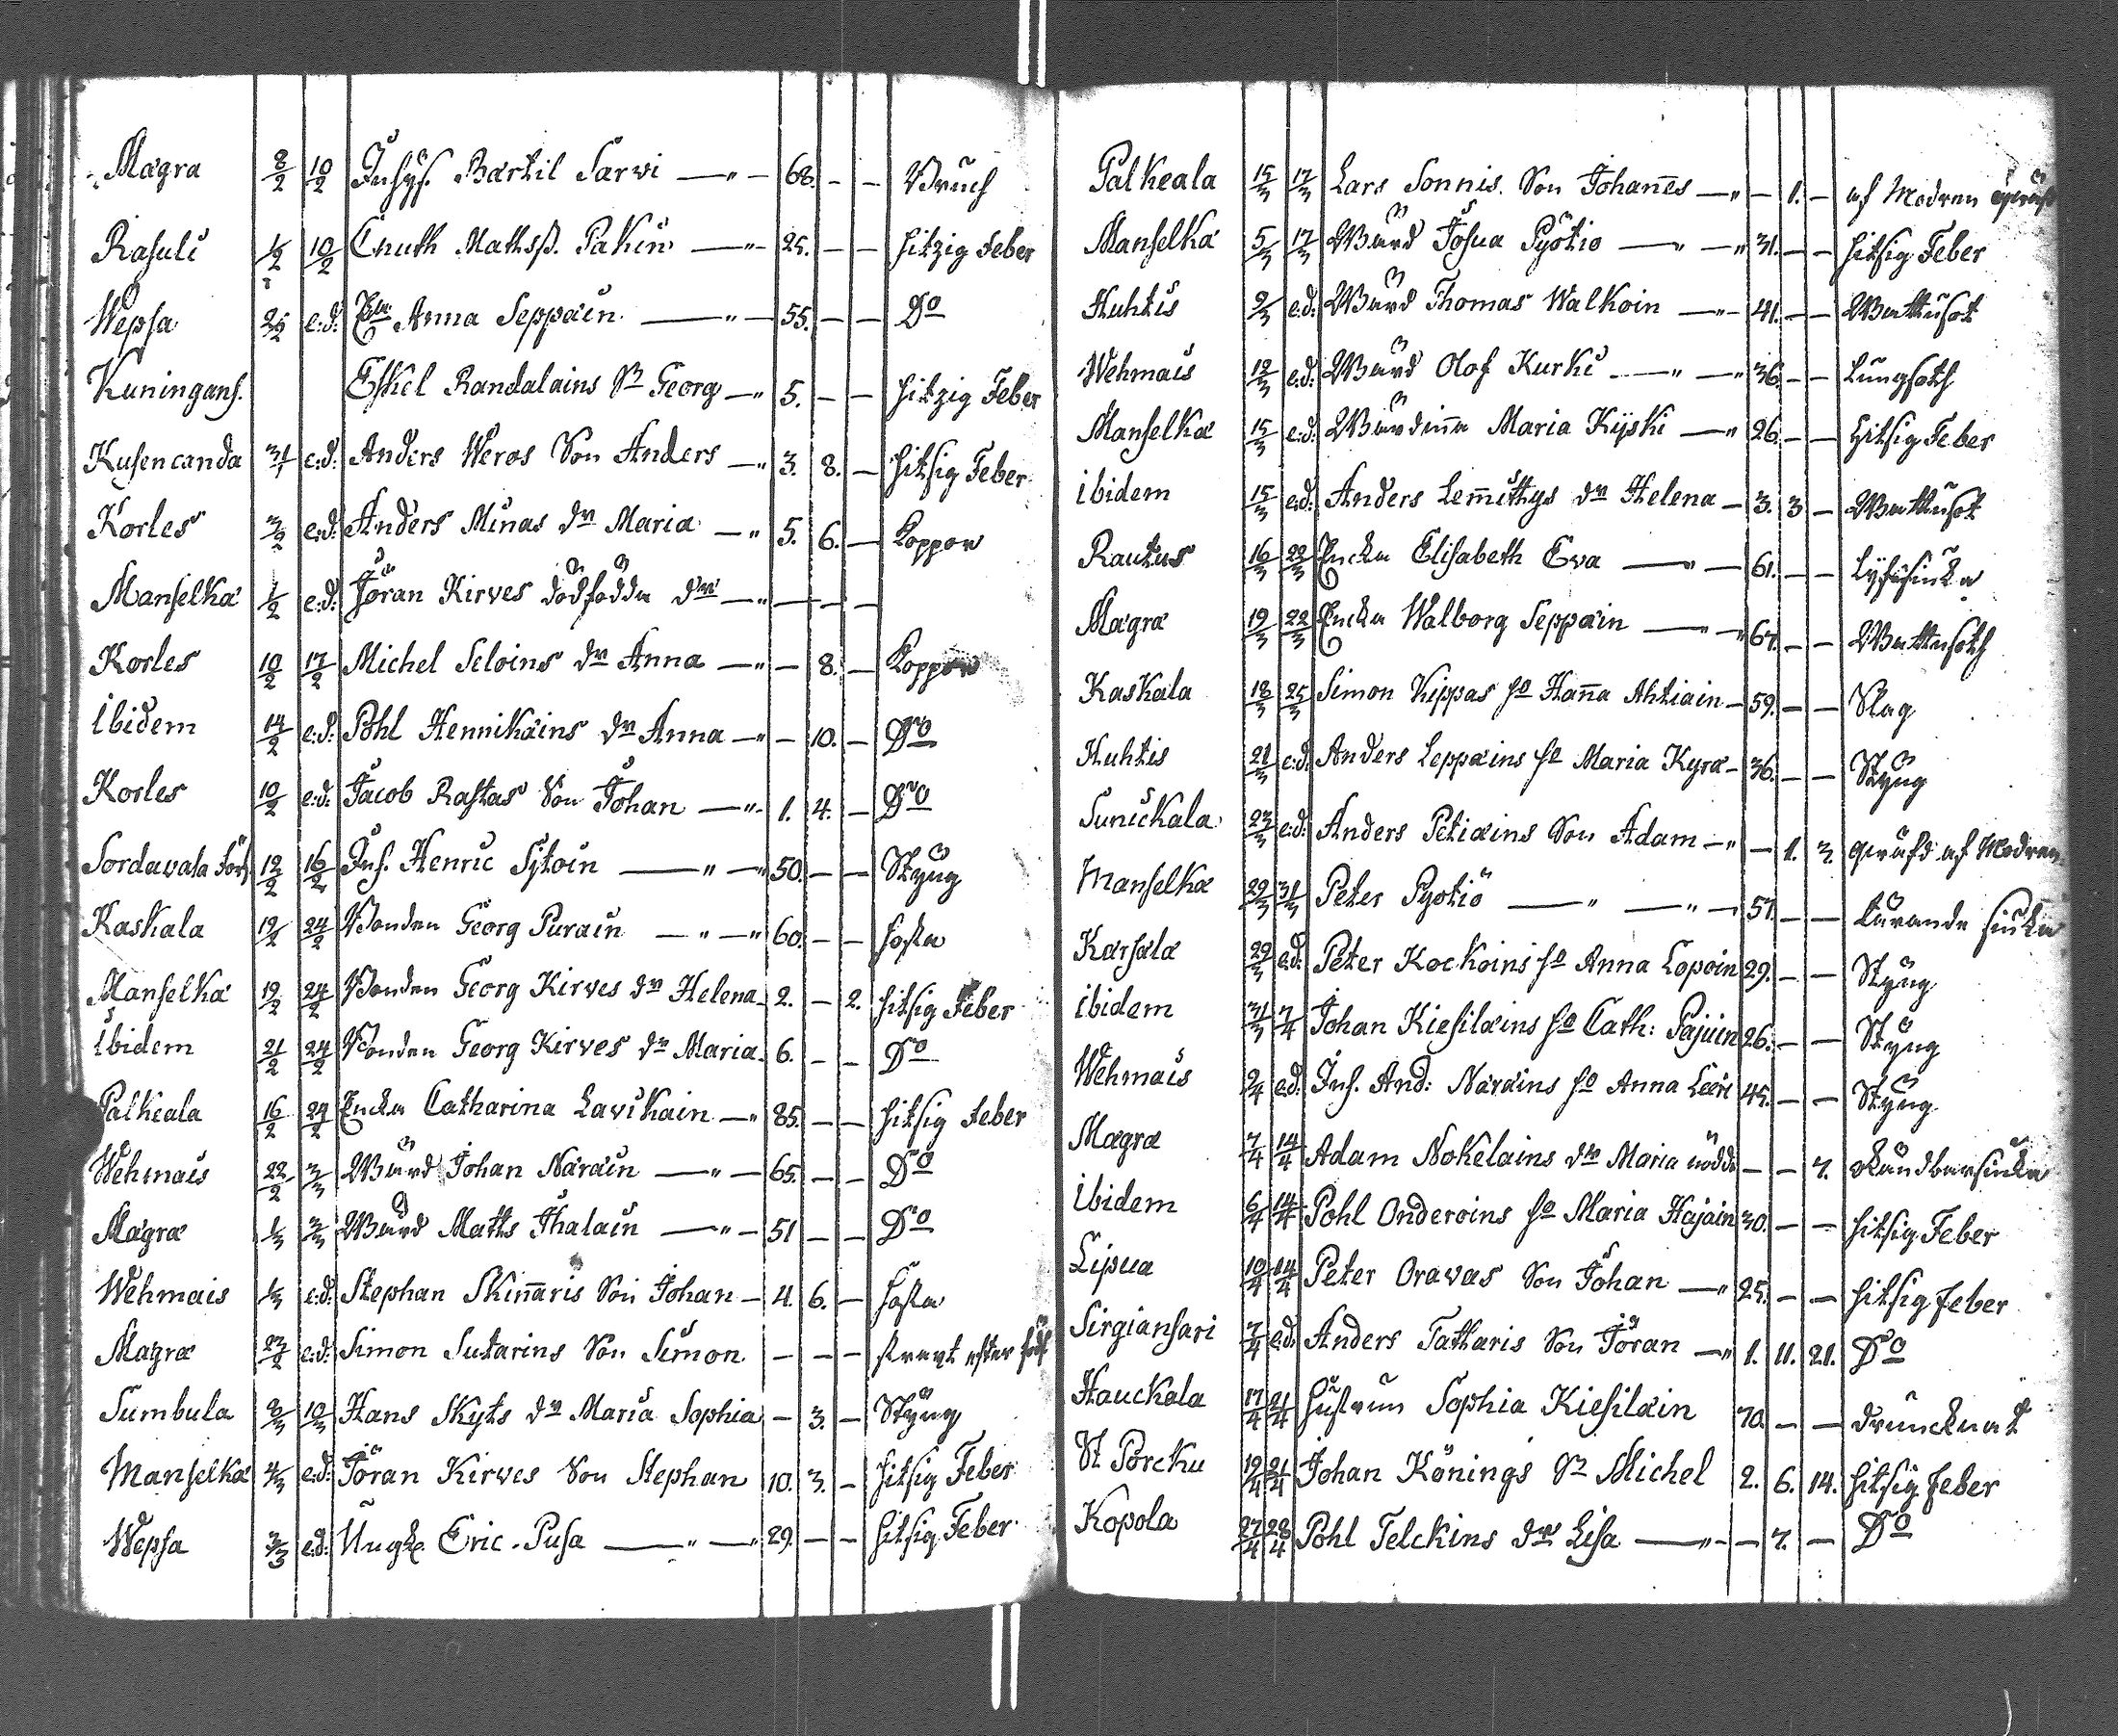 Mägrä 8/2 10/2 Inhys. Bärtil Sarvi —"— 68. — — Bruch
Rasuli 10/2 Cnuth Mathsß. Pakin —"— 25. — — hitzig Feber
Wepsa 25/2 e:d: Anna Seppäin —"— 55. — — Do
Kuningans. Eskel Randalains Sn Georg —" 5. — — hitzig Feber
Kusencanda 31/1 e:d: Anders Weros Son Anders —" 3. 8. — hitsig Feber
Korles 3/2 e:d: Anders Minas dr Maria —" 5. 6. — Koppor
Manselkä 1/2 e:d: Jöran Kirves dödfödda dr —" — — —
Korles 10/2 17/2 Michel Seloins dr Anna —" — 8. — Koppor
Ibidem 14/2 e:d: Pohl Hennikäins dr Anna —" — 10. — Do
Korles 10/2 e:d: Jacob Rastas Son Johan —" 1. 4. — Do
Sordavala 12/2 16/2 Inh. Henric Sytoin —"—" 50. — — Styng
Kaskala 19/2 24/2 Bonden Georg Purain —"—" 60. — — hosta
Manselkä 19/2 24/2 Bonden Georg Kirves dr Helena 2. — 2. hitsig Feber
Ibidem 21/2 24/2 Bonden Georg Kirves dr Maria 6. — — Do
Palkeala 16/2 24/2 Encka Catharina Lavikain —" 85. — — hitsig Feber
Wehmais 22/2 3/3 Wärd Johan Näräin —"— 65. — — Do
Mägrä 1/3 3/3 Wärd Matts Ihalain —"— 51 — — Do
Wehmais 1/3 e:d: Stephan Skinnaris Son Johan — 4. 6. — hosta
Mägrä 23/2 e:d: Simon Sutarins Son Simon — — — strax efter föds
Sumbula 8/3 10/3 Hans Skyts dr Maria Sophia — 3. — Styng
Manselkä 4/3 e:d: Jöran Kirves Son Stephan 10. 3. — hitsig Feber
Wepsa 3/3 e:d: Eric Pusa —"—" 29. — — hitsig Feber
Palkeala 15/3 17/3 Lars Sonnis Son Johanes —" — 1. — af Modren
Manselkä 5/3 17/3 Wärd Josua Pyötiö —"—" 31. — — hitsig Feber
Huhtis 9/3 e:d: Wärd Thomas Walkoin —"— 41. — — Wattusot
Wehmais 12/3 e:d: Wärd Olof Kurki —"—" 36. — — Lungsoth
Manselkä 15/3 e:d: Wärdinna Maria Kyski —" 26. — — hitsig Feber
Ibidem 15/3 e:d: Anders Lemmithys dr Helena — 3. 3 — Wattusot
Rautus 16/3 22/3 Encka Elisabeth Eva —"— 61. — —
Mägrä 19/3 22/3 Encka Walborg Seppäin —"—" 67. — — Wattusoth
Kaskala 18/3 25/3 Simon Kippas ho Hanna Ahtiain — 59. — — Slag
Huhtis 21/3 e:d: Anders Leppäins ho Maria Kyrä — 36. — — Styng
Sunickala 23/3 e:d: Anders Petiäins Son Adam —" — 1. 3. qväfd af Modren
Manselkä 29/3 31/3 Peter Pyötiö —"—"— 57. — — Tärande siuka
Karsala 29/3 e:d: Peter Kockoins ho Anna Lopoin 29. — — Styng
Ibidem 31/3 7/4 Johan Kiesiläins ho Cath: Pajuin 26. — — Styng
Wehmais 2/4 e:d: Inh. And: Näräins ho Anna 45. — — Styng
Mägrä 7/4 14/4 Adam Nokelains dr Maria nöddö — — 7.
Ibidem 6/4 14/4 Pohl Onderoins ho Maria Hajain 30. — — hitsig Feber
Lipua 10/4 14/4 Peter Oravas Son Johan —" 25. — — hitsig feber
Sirgiansari 7/4 e:d: Anders Tatharis Son Jöran —" 1. 11. 21. Do
Hauckala 17/4 21/4 Hustrun Sophia Kiesiläin 70. — — drunknat
St Porcku 19/4 21/4 Johan Könings Sn Michel 2. 6. 14. hitsig feber
Kopola 27/4 28/4 Pohl Telckins dr Lisa —"— — 7. — Do